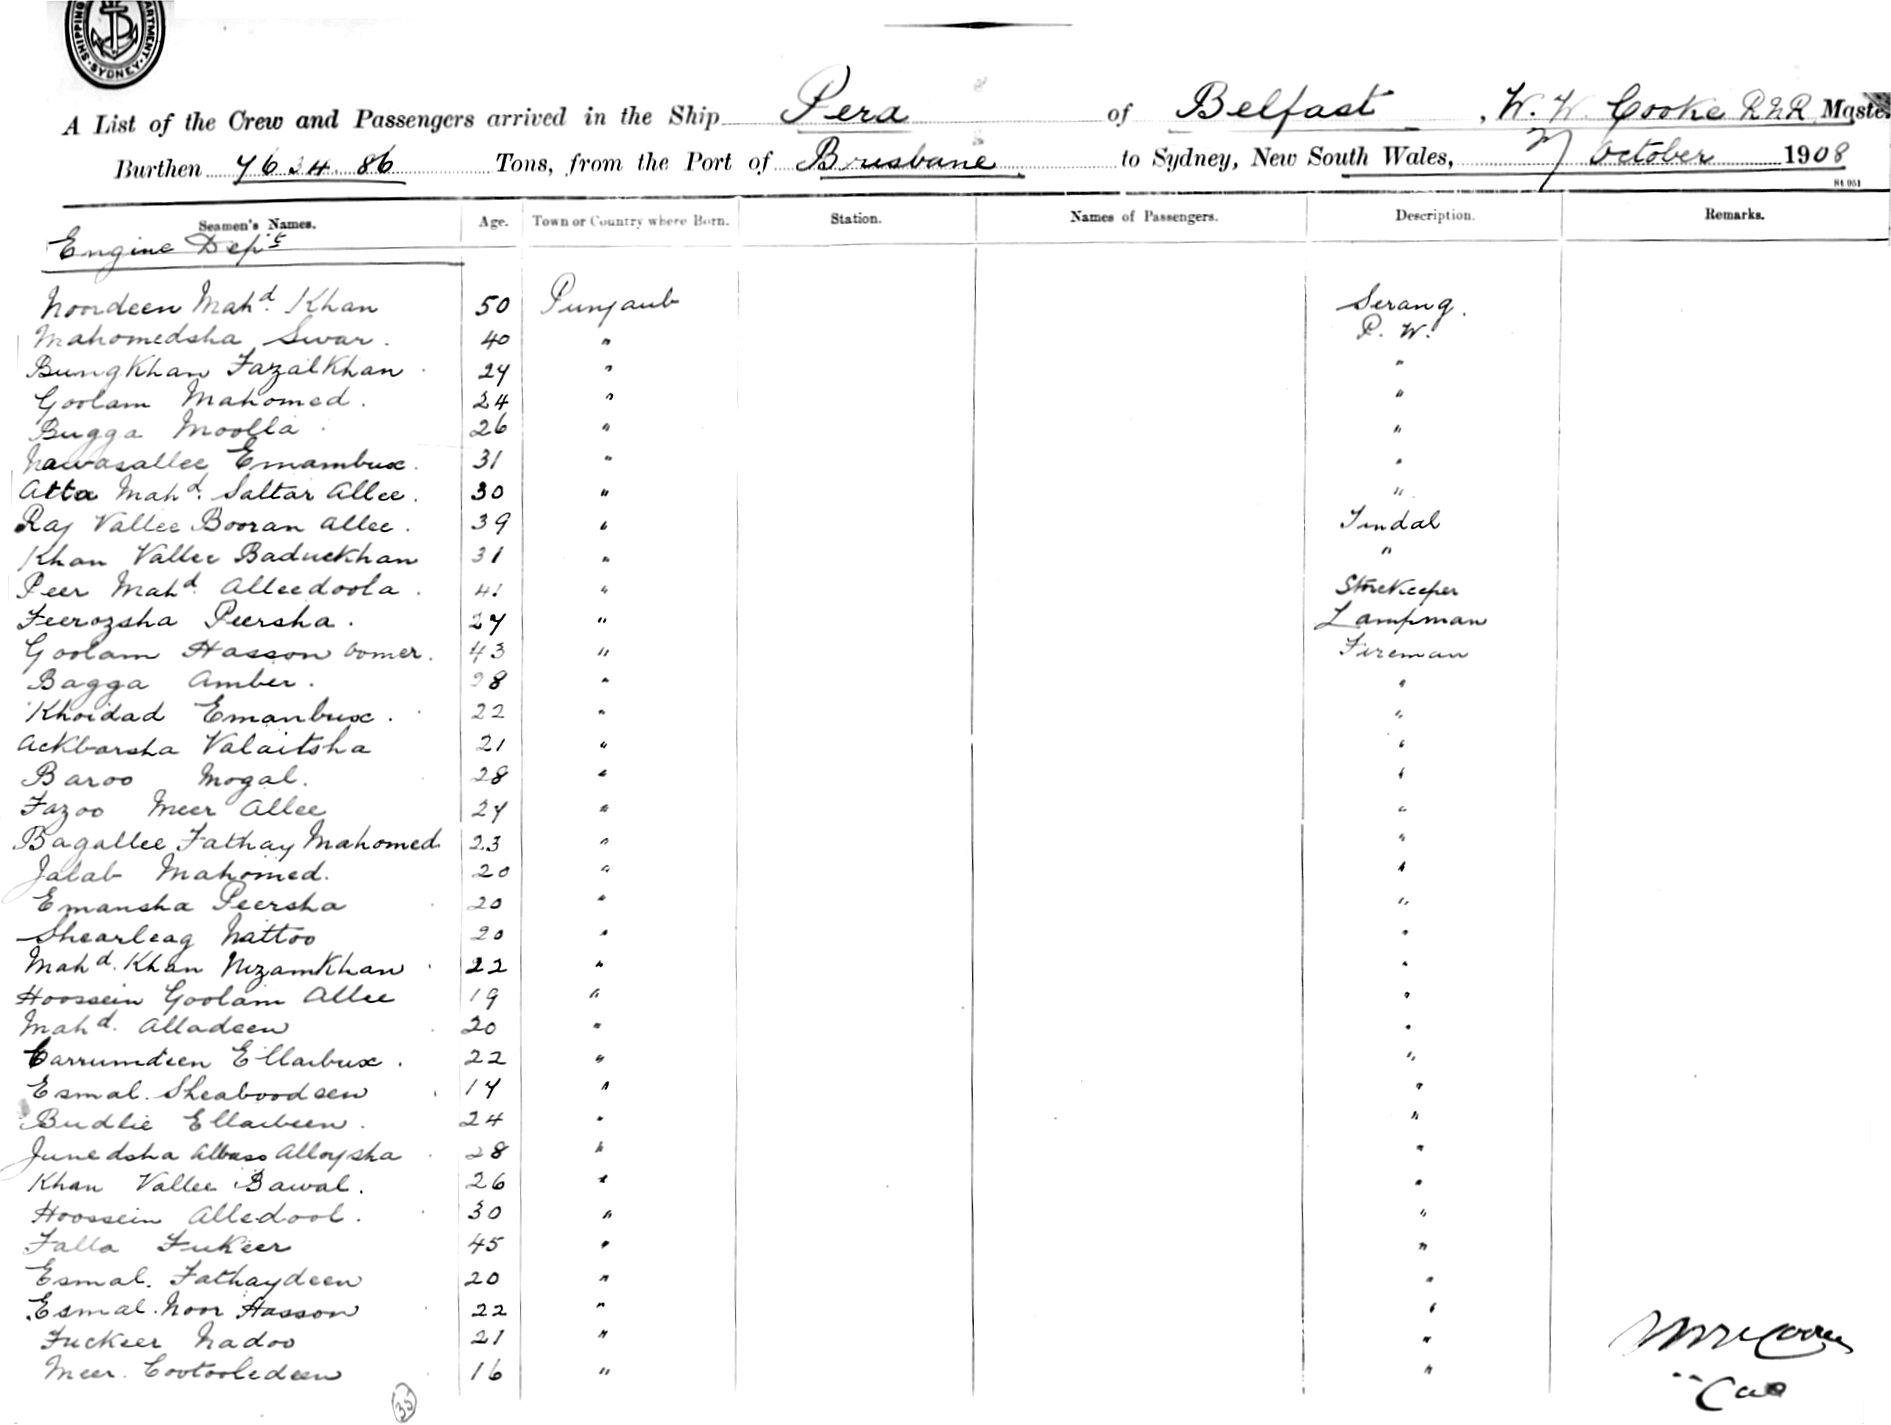 SHIPPING DEPARTMENT SYDNEY
A List of the Crew and Passengers arrived in the Ship Pera of Belfast, W. W. Cooke R.N.R. Maste
Burthen 7634.86 Tons, from the Port of Brisbane to Sydney, New South Wales, 27 October 1908
St 951
Seamen's Names. Age. Town or Country where Born. Station. Names of Passengers. Description. Remarks.
Engine Dept
Noordeen Mahd. Khan 50 Punjaub Serang.
Mahomedsha Swar. 40 " P. W.
Bungkhan Fazalkhan 27 " "
Goolam Mahomed. 24 " "
Bugga Moolla 26 " "
Nawasallee Emambux. 31 " "
Atta Mahd. Saltar Allee. 30 " "
Raj Vallee Booran Allee. 39 " Tindal
Khan Vallee Baduckhan 31 " "
Peer Mahd. Alleedoola. 41 " Storekeeper
Feerozsha Peersha. 27 " Lampman
Goolam Hasson Oomer. 43 " Fireman
Bagga Amber. 28 " "
Khoidad Emanbux. 22 " "
Ackbarsha Valaitsha 21 " "
Baroo Mogal. 28 " "
Fazoo Meer Allee 27 " "
Bagallee Fathay Mahomed 23 " "
Jalab Mahomed. 20 " "
Emansha Peersha 20 " "
Shearleag Nattoo 20 " "
Mahd. Khan Nizamkhan 22 " "
Hoossein Goolam Allee 19 " "
Mahd. Alladeen 20 " "
Carrumdeen Ellaibux. 22 " "
Esmal. Sheaboodeen 17 " "
Budlie Ellaibeen. 24 " "
Junedsha Albaso Alloysha 28 " "
Khan Vallee Bawal. 26 " "
Hoossein Alledool. 30 " "
Falla Fukeer 45 " "
Esmal. Fathaydeen 20 " "
Esmal. Noor Hasson 22 " "
Fuckeer Nadoo 21 " "
Meer. Cootooledeen 16 " "
35